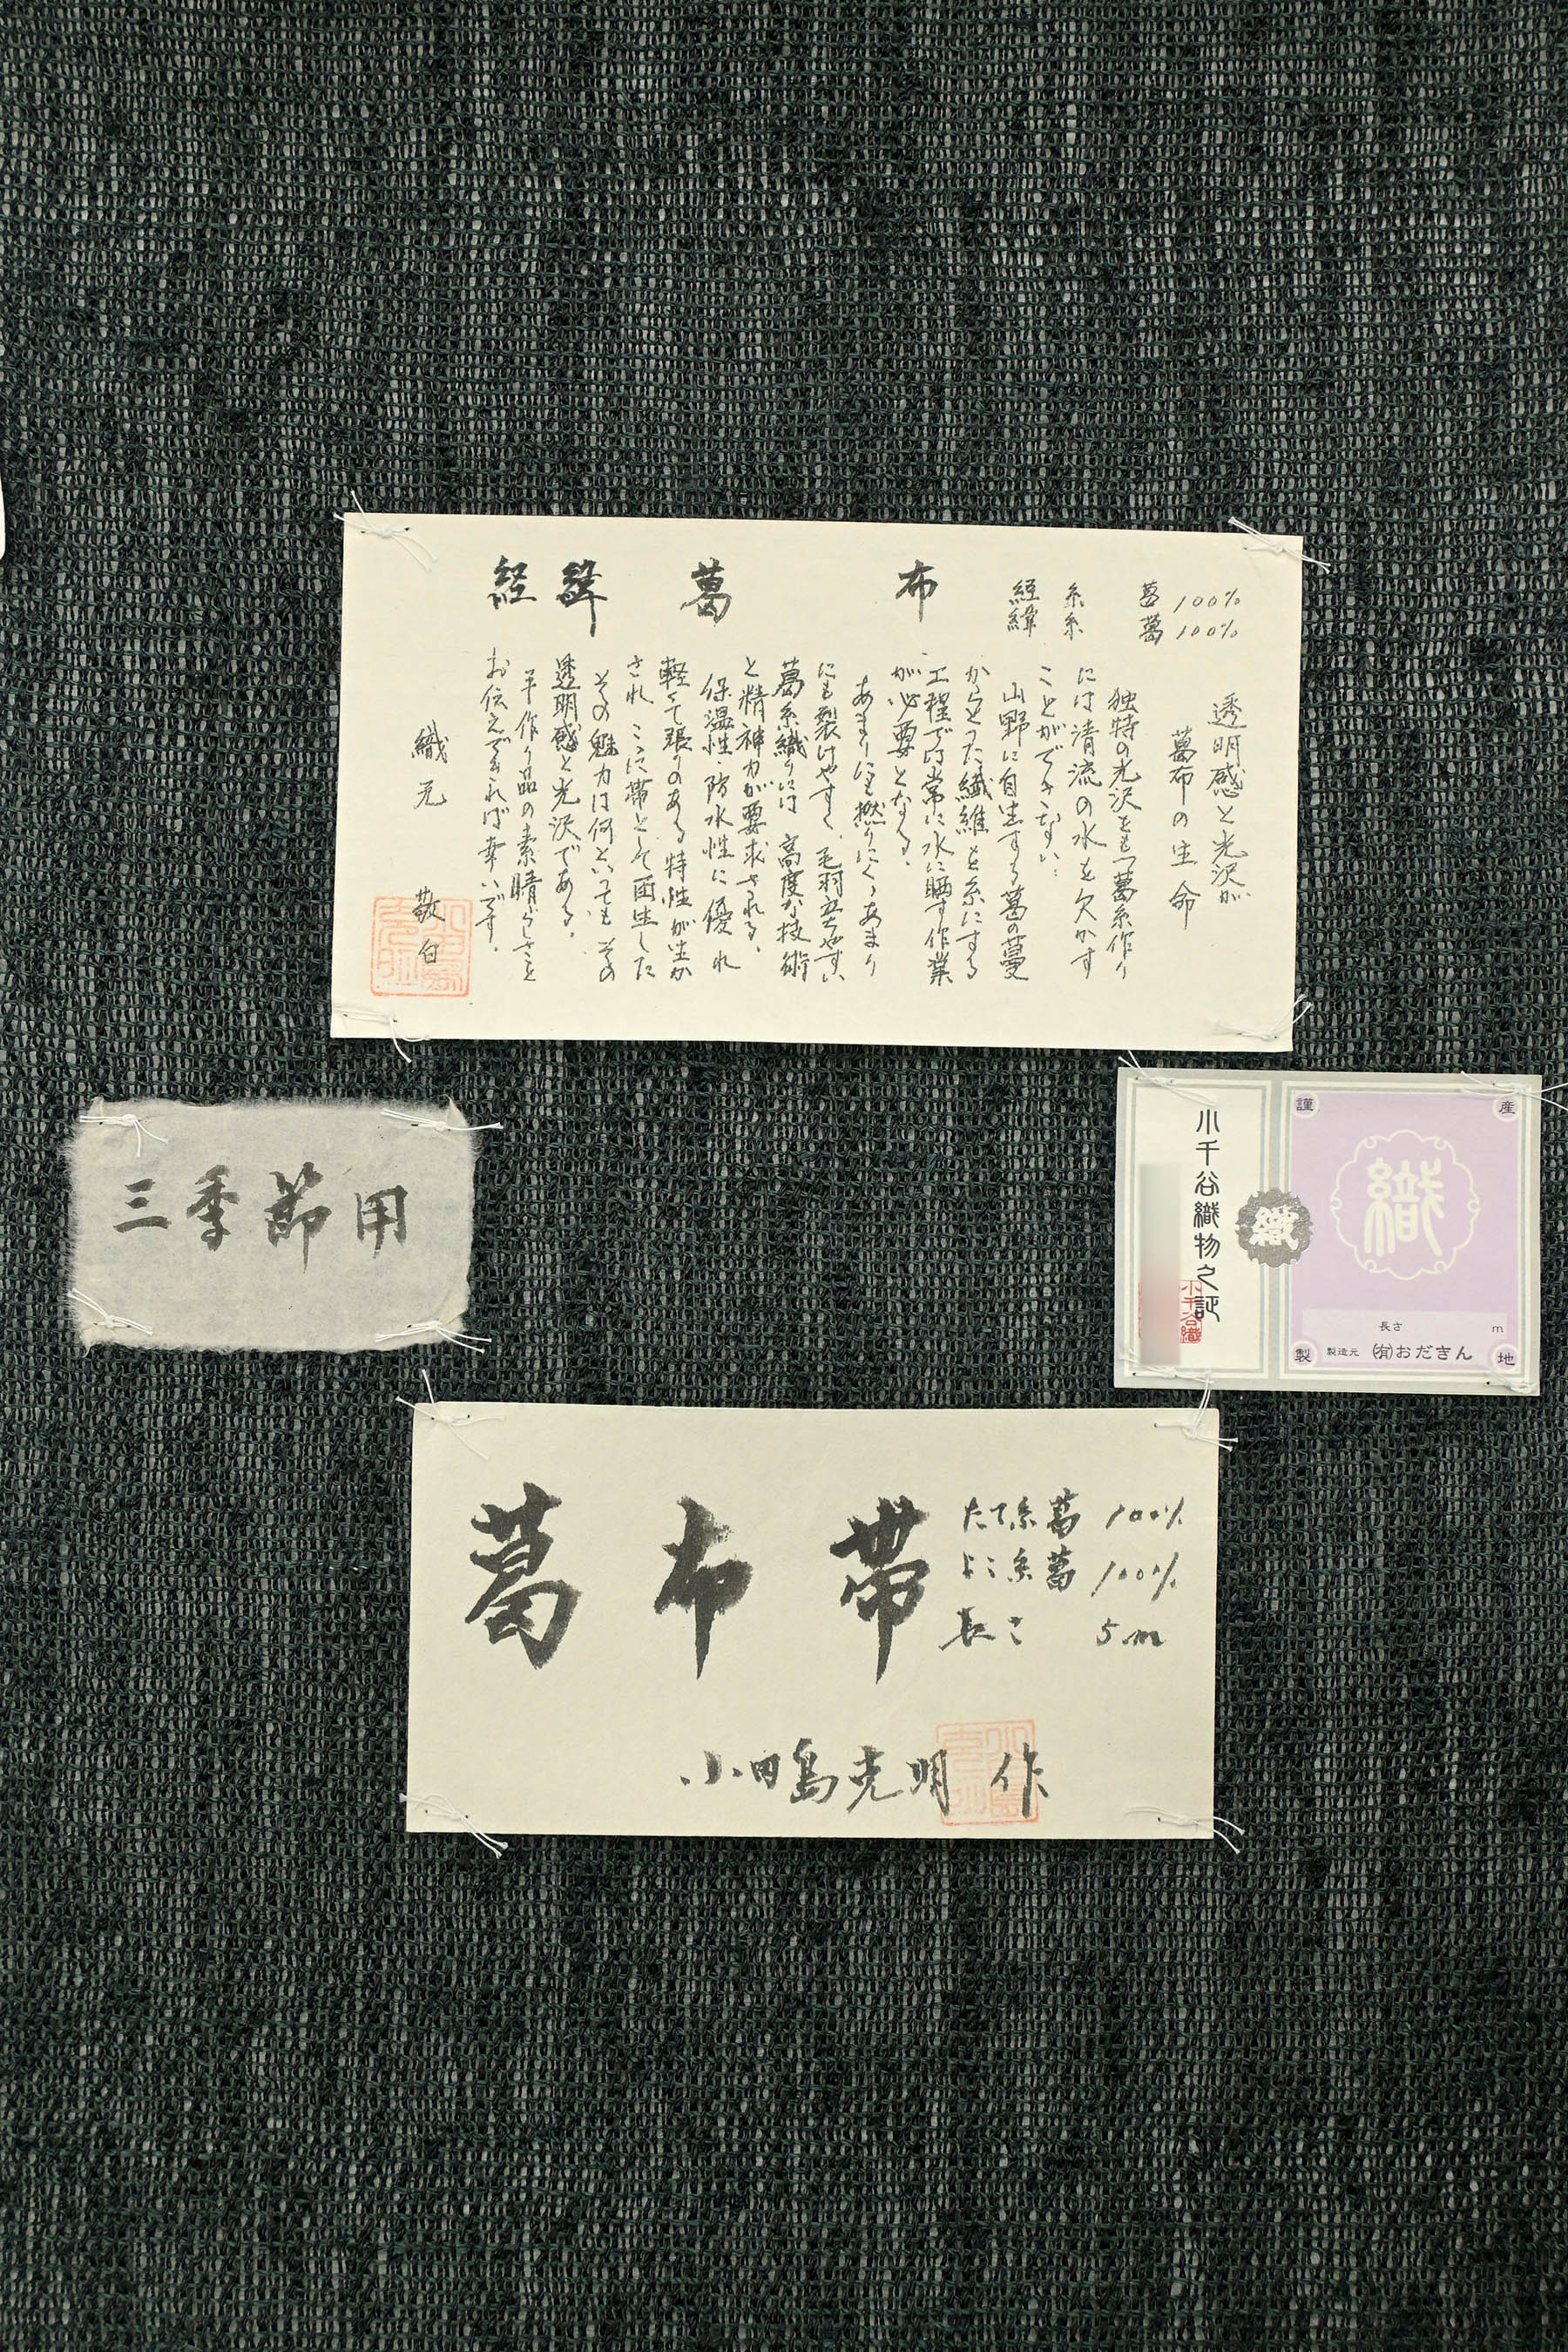 経緯葛布
経糸 葛 100%
緯糸 葛 100%
透明感と光沢が
葛布の生命
独特の光沢をもつ葛糸作り
には清流の水を欠かす
ことができない
山野に自生する葛の蔓
からとった繊維を糸にする
工程では常に水に晒す作業
が必要となる。
あまりにも撚りにくくあまり
にも裂けやすく、毛羽立ちやすい
葛糸織りには高度な技術
と精神力が要求される、
保温性・防水性に優れ
軽くて張りのある特性が生か
され ここに帯として再生した
その魅力は何といってもその
透明感と光沢である。
手作り品の素晴らしさを
お伝えできれば幸いです。
織元 敬白
三季節用
小千谷織物之証
小千谷織
織
謹
産
織
長さ m
製
製造元 (有)おだきん
地
葛布帯
たて糸葛 100%
よこ糸葛 100%
長さ 5m
小田島克明 作